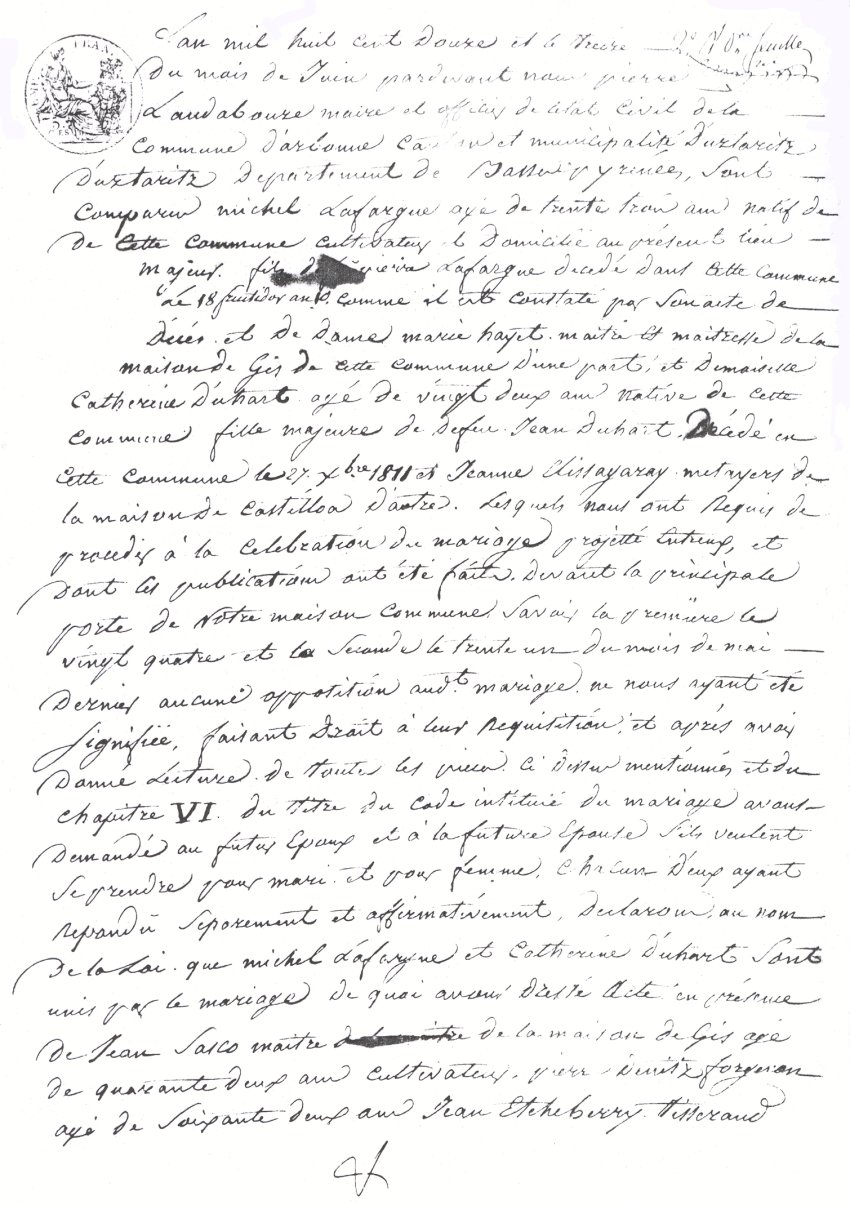 L'an mil huit cent Douze et le treize 2e feuille
Du mois de Juin pardevant nous pierre
Landabouze maire et officier de letat Civil de la
Commune D'arbonne Canton et municipalité D'uztaritz
D'uztaritz Departement de Basses pyrinées, Sont
Comparus michel Lafargue agé de trente trois ans natif de
de Cette Commune cultivateur et Domicilié au présent lieu
majeur. fils de pierre Lafargue decedé dans Cette Commune
Le 18 fructidor an comme il est Constaté par Son acte de
Décés et de Dame marie hayet maitre et maitresse de la
maison de Gis de Cette Commune D'une part, et Demoiselle
Catherine D'uhart agé de vingt deux ans native de Cette
Commune fille majeure de Defeu Jean Duhart Décédé en
Cette Commune le 27 Xbre 1811 et Jeanne Elissagaray metayers de
la maison de Castelloa D'autre. Lesquels nous ont Requis de
proceder à la Celebration du mariage projetté Entreux, et
Dont les publications ont été faites Devant la principale
porte de Notre maison Commune Savoir la premiere le
vingt quatre et la Seconde le trente un du mois de mai
Dernier aucune opposition audt. mariage ne nous ayant été
Signifiée, faisant Droit à leur Requisition, et aprés avoir
Donné Lecture de toutes les pieces Ci Dessus mentionnés et du
Chapitre VI. du titre du Code intitulé du mariage avons
Demandé au futur Epoux et à la future Epouse S'ils veulent
Se prendre pour mari et pour femme, Chacun D'eux ayant
repondu Séparement et affirmativement, Declarons au nom
De la Loi que michel Lafargue et Catherine D'uhart Sont
unis par le mariage De quoi avons Dressé Acte en présence
de Jean Sasco maitre de la maison de Gis agé
de quarante deux ans Cultivateur, pierre forgeron
agé de Soixante deux ans Jean Etcheberry tisserand